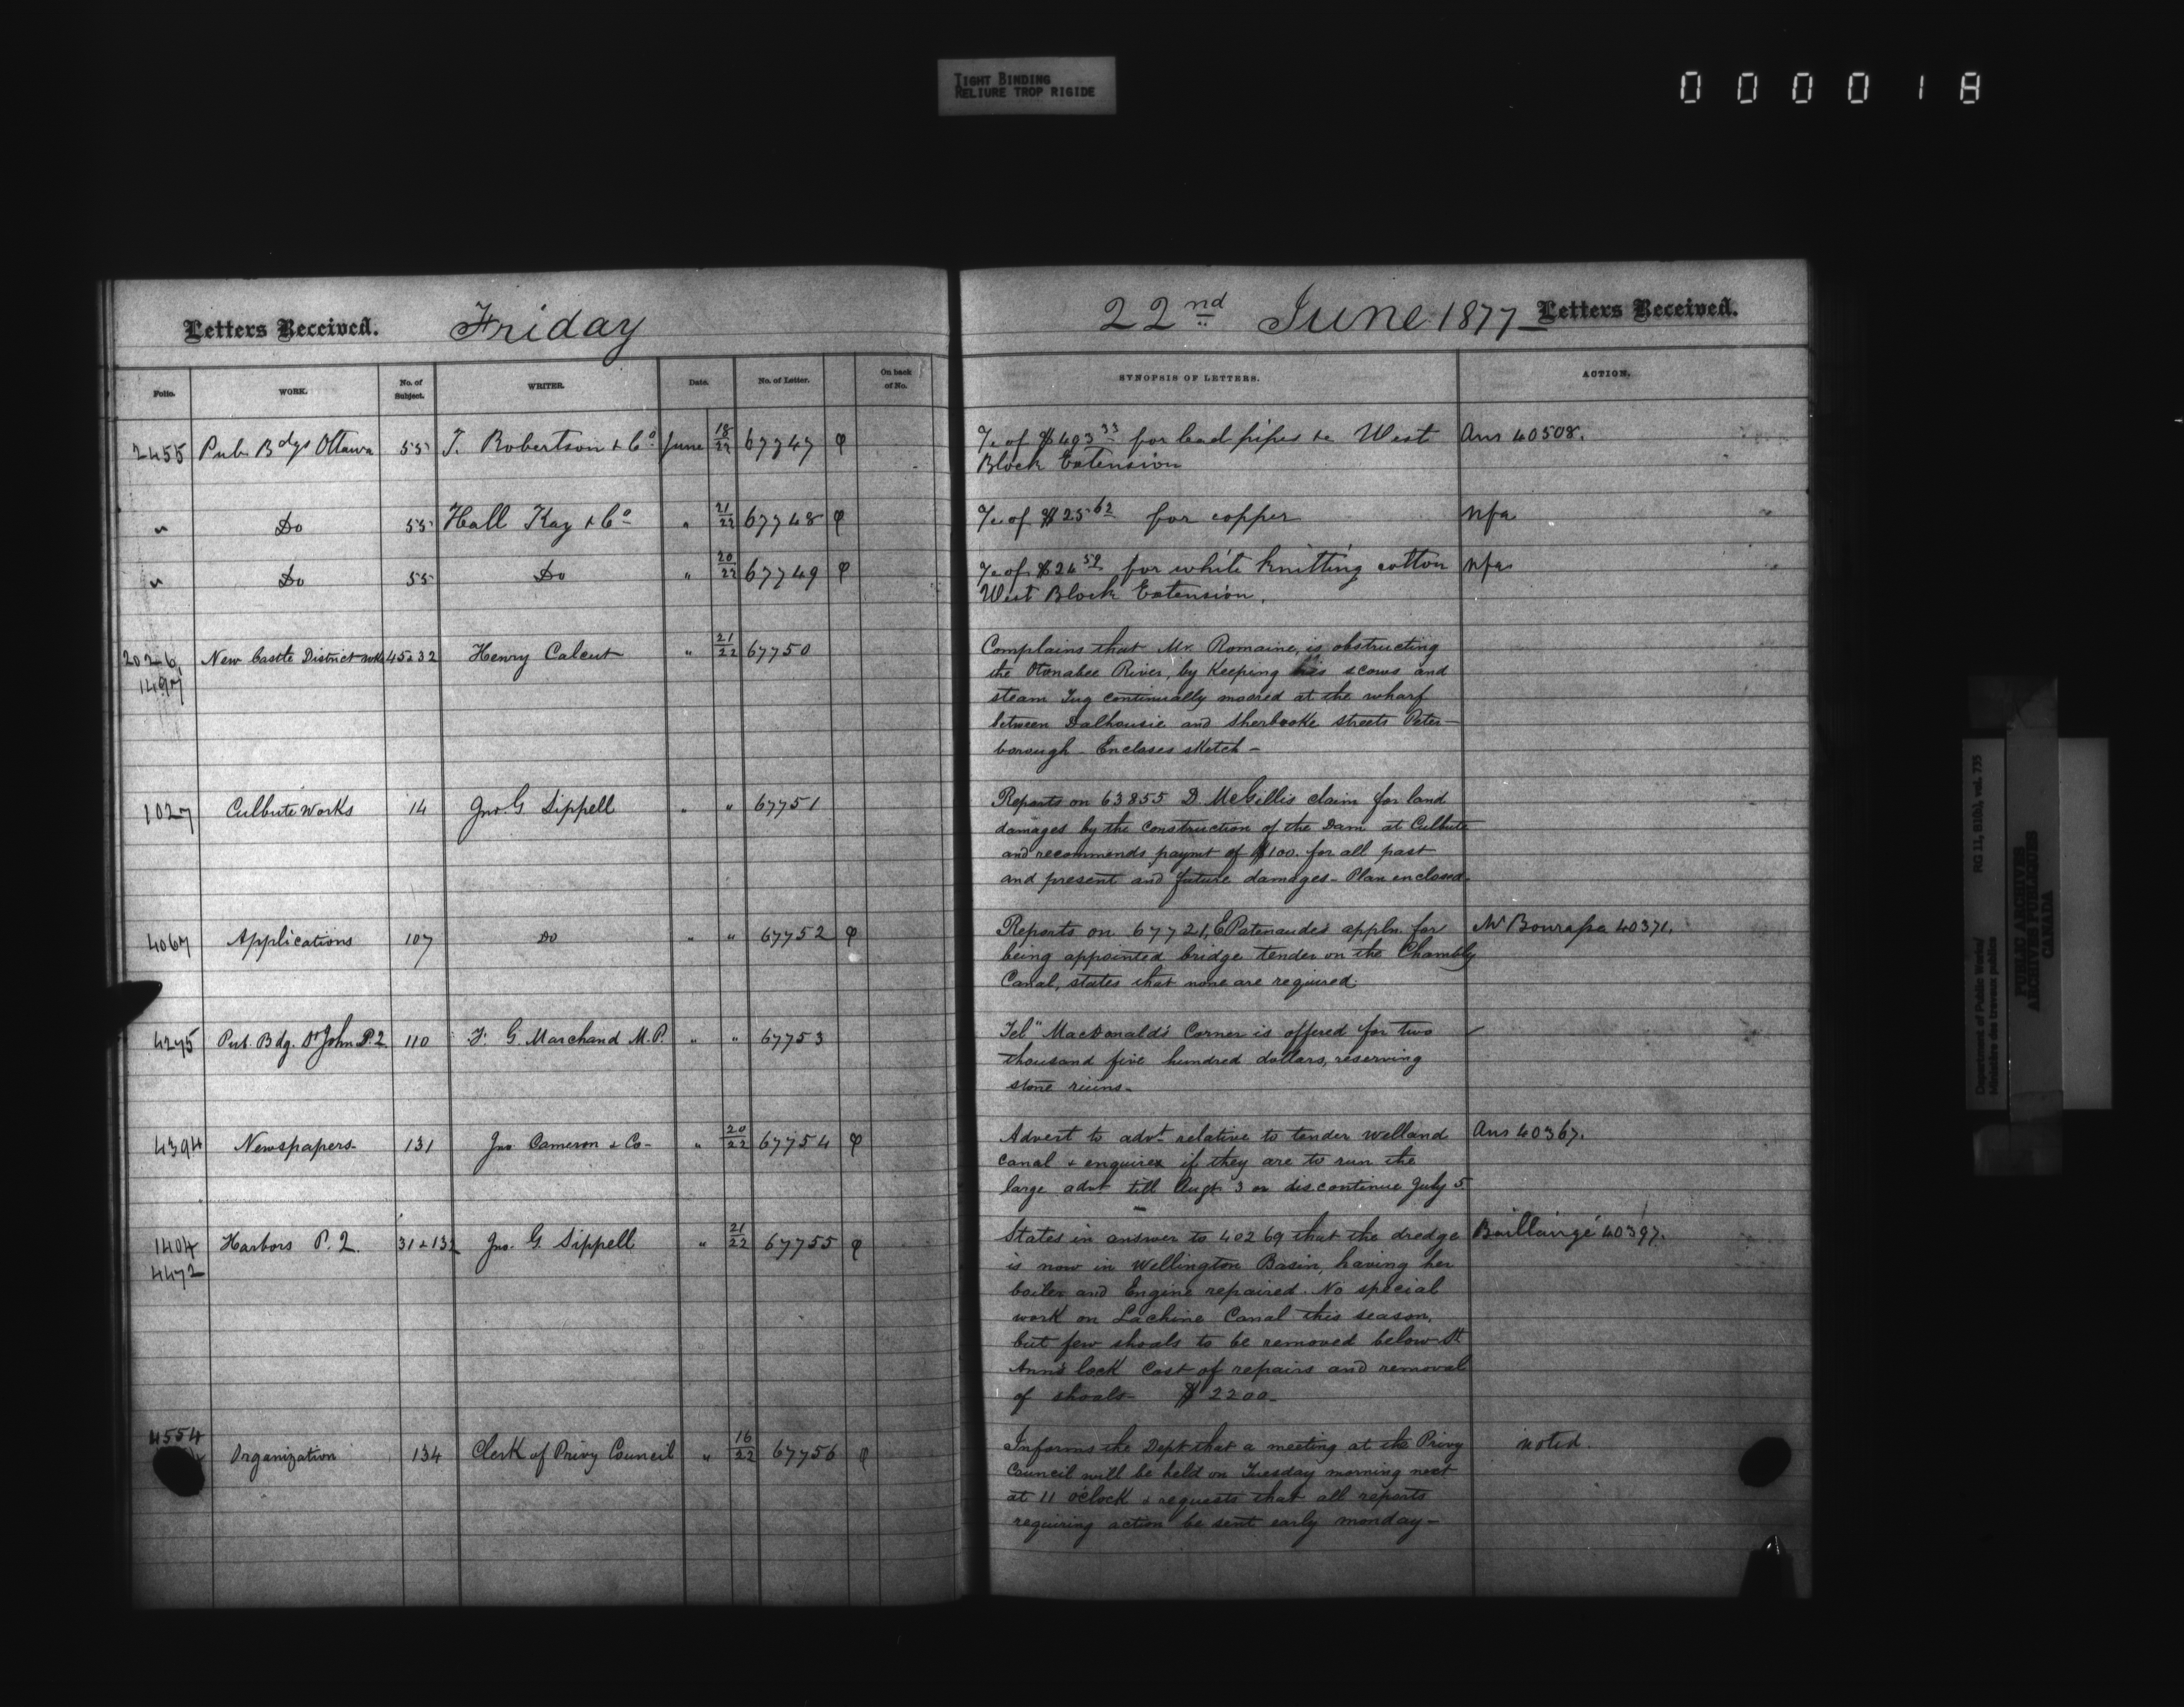 TIGHT BINDING
RELIURE TROP RIGIDE
000018
Letters Received. Friday
22nd June 1877 Letters Received.
Folio. WORK. No. of Subject. WRITER. Date. No. of Letter. On back of No. SYNOPSIS OF LETTERS. ACTION.
2455 Pub. Bdgs Ottawa 55 T. Robertson & Co June 18/22 67747 φ
of $493 33 for lead pipes &c West Ans 40508.
Block Extension
" Do 55 Hall Kay & Co " 21/22 67748 φ
of $25 62 for copper nfa
" Do 55 Do " 20/22 67749 φ
of $24 59 for white knitting cotton nfa
West Block Extension.
2026, New Castle District wks 45232 Henry Calcut " 21/22 67750
1497
Complains that Mr. Romaine, is obstructing
the Otonabee River, by Keeping his scows and
steam Tug continually moored at the wharf
between Dalhousie and Sherbrooke streets Peter-
borough - Encloses sketch -
1027 Culbute Works 14 Jno. G Sippell " " 67751
Reports on 63855 D. McGillis claim for land
damages by the construction of the Dam at Culbute
and recommends paymt of $100. for all past
and present and future damages - Plan enclosed.
4067 Applications 107 Do " " 67752 φ
Reports on 67721, E Patenaude's appln. for Mr Bourassa 40371.
being appointed bridge tender on the Chambly
Canal, states that none are required.
4275 Pub. Bdg. St John P.2 110 F. G. Marchand M.P. " " 67753
Tel" MacDonald's Corner is offered for two
thousand five hundred dollars, reserving
stone ruins.
4394 Newspapers 131 Jno Cameron & Co - " 20/22 67754 φ
Advert to advt relative to tender Welland Ans 40367.
Canal & enquires if they are to run the
large advt till Augt 3 or discontinue July 5
1404 Harbors P. Q. 31 & 132 Jno. G. Sippell " 21/22 67755 φ
4472
States in answer to 40269 that the dredge Baillairgé 40397.
is now in Wellington Basin, having her
boiler and Engine repaired. No special
work on Lachine Canal this season,
but few shoals to be removed below St
Ann's lock Cost of repairs and removal
of shoals - $2200 -
4554 Organization 134 Clerk of Privy Council " 16/22 67756 φ
Informs the Dept that a meeting at the Privy noted.
Council will be held on Tuesday morning next
at 11 o'clock & requests that all reports
requiring action be sent early monday -
Department of Public Works/
Ministère des travaux publics
RG 11, B1(b), vol. 735
PUBLIC ARCHIVES
ARCHIVES PUBLIQUES
CANADA